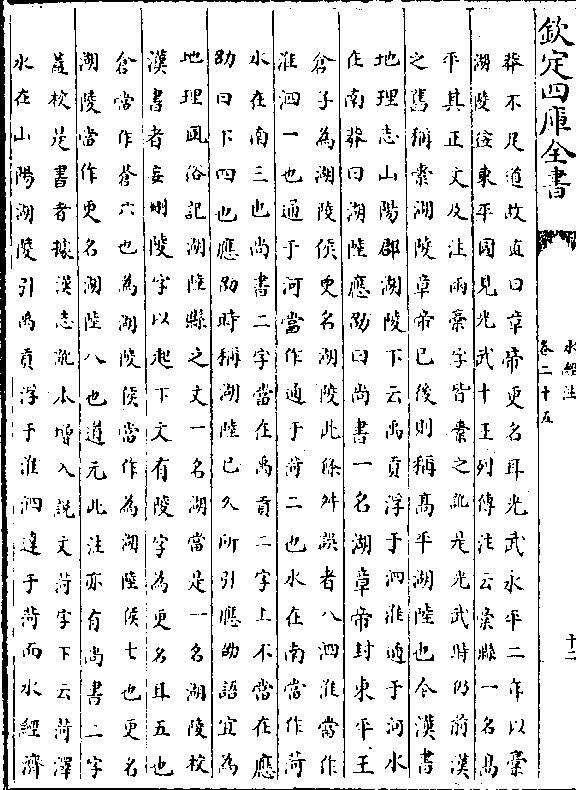 欽定四庫全書
水經注
卷二十五
十二
莽不足道故直曰章帝更名耳光武永平二年以橐
湖陵益東平國見光武十王列傳注云橐縣一名高
平其正文及注兩橐字皆橐之訛是光武時仍前漢
之舊稱橐湖陵章帝已後則稱高平湖陸也今漢書
地理志山陽郡湖陵下云禹貢浮于泗淮通于河水
在南莽曰湖陸應劭曰尚書一名湖章帝封東平王
倉子為湖陵侯更名湖陵此條舛誤者八泗淮當作
淮泗一也通于河當作通于菏二也水在南當作菏
水在南三也尚書二字當在禹貢二字上不當在應
劭曰下四也應劭時稱湖陸已久所引應劭語宜為
地理風俗記湖陸縣之文一名湖當是一名湖陵校
漢書者妄刪陵字以起下文有陵字為更名耳五也
倉當作蒼六也為湖陵侯當作為湖陸侯七也更名
湖陵當作更名湖陸八也道元此注亦有尚書二字
蓋校是書者據漢志訛本增入說文菏字下云菏澤
水在山陽湖陵引禹貢浮于淮泗達于菏而水經濟